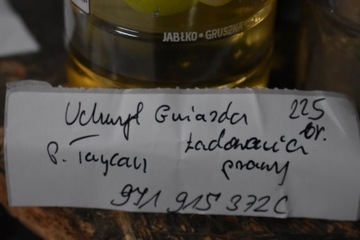 JABŁKO-GRUSZKA
Uchwyt Gniazda 225
P. Taycan Ładowania gr.
prawy
971 915 372C